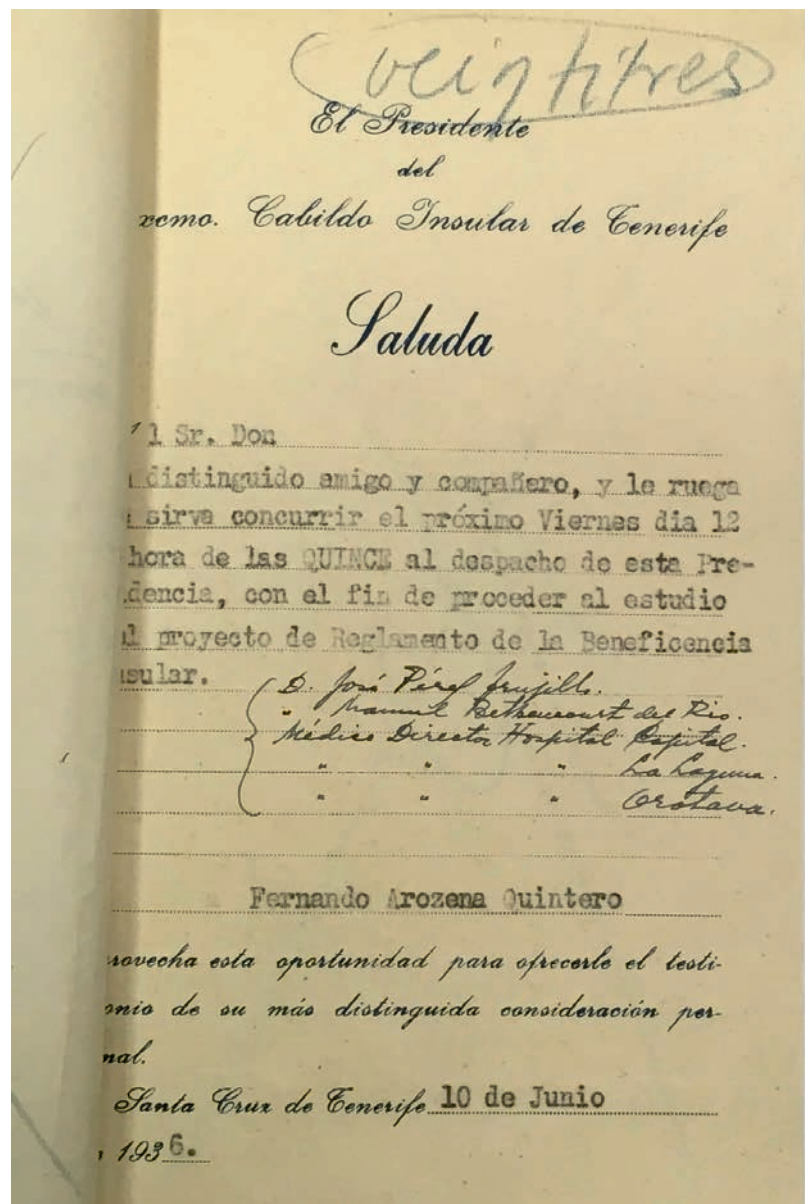 veintitres
El Presidente
del
xcmo. Cabildo Insular de Tenerife
Saluda
l Sr. Don
distinguido amigo y compañero, y le ruega
sirva concurrir el próximo Viernes dia 12
hora de las QUINCE al despacho de esta Pre-
dencia, con el fin de proceder al estudio
l proyecto de Reglamento de la Beneficencia
sular.
D. José Pérez Trujillo.
" Manuel Bethencourt del Rio.
Médico Director Hospital Capital.
" " " La Laguna.
" " " Orotava.
Fernando Arozena Quintero
rovecha esta oportunidad para ofrecerle el testi-
onio de su más distinguida consideración per-
nal.
Santa Cruz de Tenerife 10 de Junio
1936.